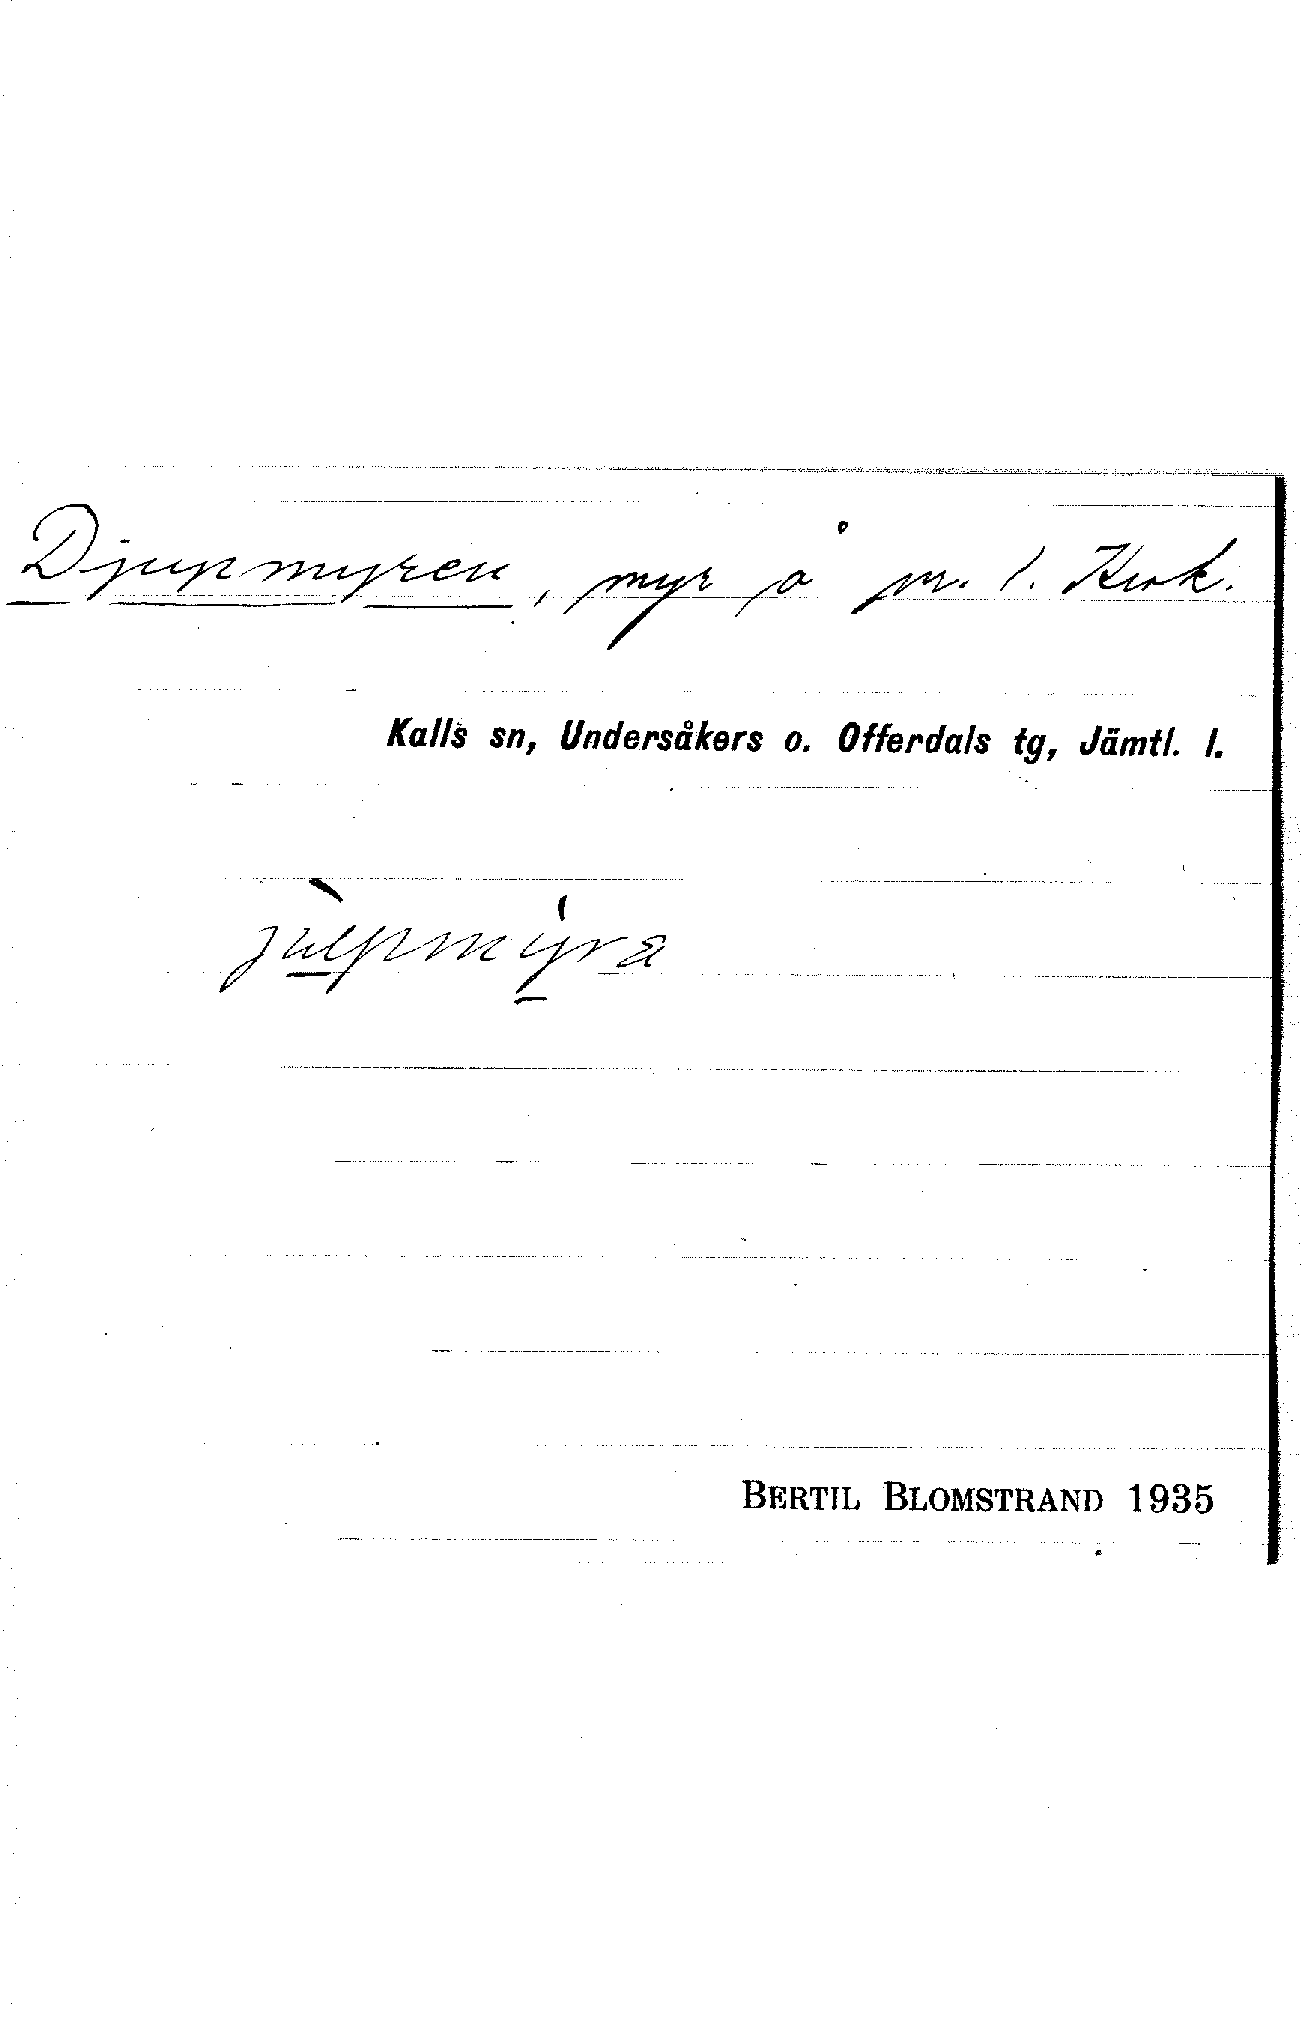 Djupmyren, myr å pr. 1. Krok.
Kalls sn, Undersåkers o. Offerdals tg, Jämtl. l.
BERTIL BLOMSTRAND 1935